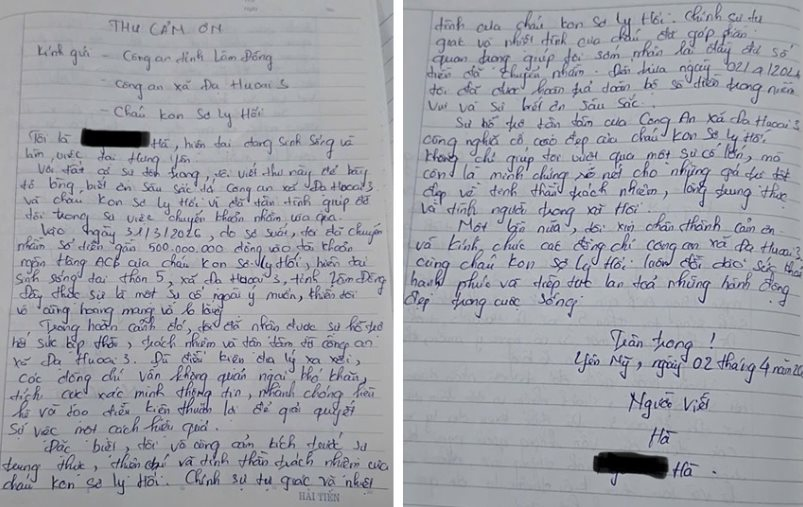 THƯ CẢM ƠN
Kính gửi - Công an tỉnh Lâm Đồng
- Công an xã Đa Huoai 3
- Cháu Kon Sơ Ly Hôi
Tôi là Hà, hiện tại đang sinh sống và
làm việc tại Hưng Yên.
Với tất cả sự tôn trọng, tôi viết thư này để bày
tỏ lòng biết ơn sâu sắc tới Công an xã Đa Huoai 3
và cháu Kon Sơ Ly Hôi vì đã tận tình giúp đỡ
tôi trong sự việc chuyển khoản nhầm vừa qua.
Vào ngày 31/3/2026, do sơ suất, tôi đã chuyển
nhầm số tiền gần 500.000.000 đồng vào tài khoản
ngân hàng ACB của cháu Kon Sơ Ly Hôi, hiện đang
sinh sống tại thôn 5, xã Đa Huoai 3, tỉnh Lâm Đồng
Đây thực sự là một sự cố ngoài ý muốn, khiến tôi
vô cùng hoang mang và lo lắng
Trong hoàn cảnh đó, tôi đã nhận được sự hỗ trợ
hết sức kịp thời, trách nhiệm và tận tâm từ công an
xã Đa Huoai 3. Dù điều kiện địa lý xa xôi,
các đồng chí vẫn không quản ngại khó khăn,
tích cực xác minh thông tin, nhanh chóng liên
hệ và tạo điều kiện thuận lợi để giải quyết
sự việc một cách hiệu quả.
Đặc biệt, tôi vô cùng cảm kích trước sự
trung thực, thiện chí và tinh thần trách nhiệm của
cháu Kon Sơ Ly Hôi. Chính sự tự giác và nhiệt
HẢI TIẾN
tình của cháu Kon Sơ Ly Hôi. Chính sự tự
giác và nhiệt tình của cháu đã góp phần
quan trọng giúp tôi sớm nhận lại đầy đủ số
tiền đã chuyển nhầm. Đến trưa ngày 02/4/2026
tôi đã được hoàn trả toàn bộ số tiền trong niềm
vui và sự biết ơn sâu sắc.
Sự hỗ trợ tận tâm của Công An xã Đa Huoai 3
cùng nghĩa cử cao đẹp của cháu Kon Sơ Ly Hôi
không chỉ giúp tôi vượt qua một sự cố lớn, mà
còn là minh chứng rõ nét cho những giá trị tốt
đẹp về tinh thần trách nhiệm, lòng trung thực
và tình người trong xã hội.
Một lần nữa, tôi xin chân thành cảm ơn
và kính chúc các đồng chí công an xã Đa Huoai 3,
cùng cháu Kon Sơ Ly Hôi luôn dồi dào sức khỏe
hạnh phúc và tiếp tục lan toả những hành động
đẹp trong cuộc sống.
Trân trọng !
Yên Mỹ, ngày 02 tháng 4 năm
Người viết
Hà
Hà.